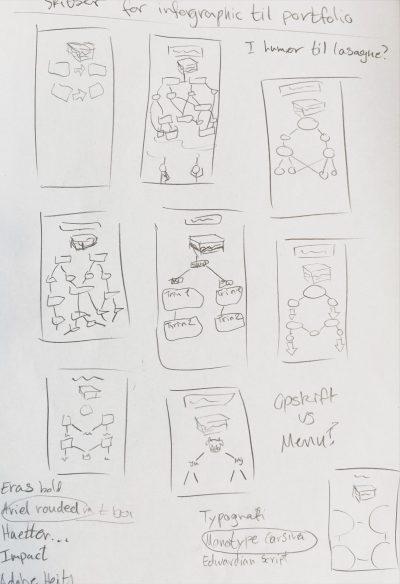 Skitser for infographic til portfolio
I humør til lasagne?
Trin 1
Trin 1
Trin 2
Trin 2
Ja
Nej
Opskrift
vs
Menu?
Eras bold
Ariel rouded
Haetter...
Impact
Typografi
Monotype corsiva
Edwardian Script
Adobe